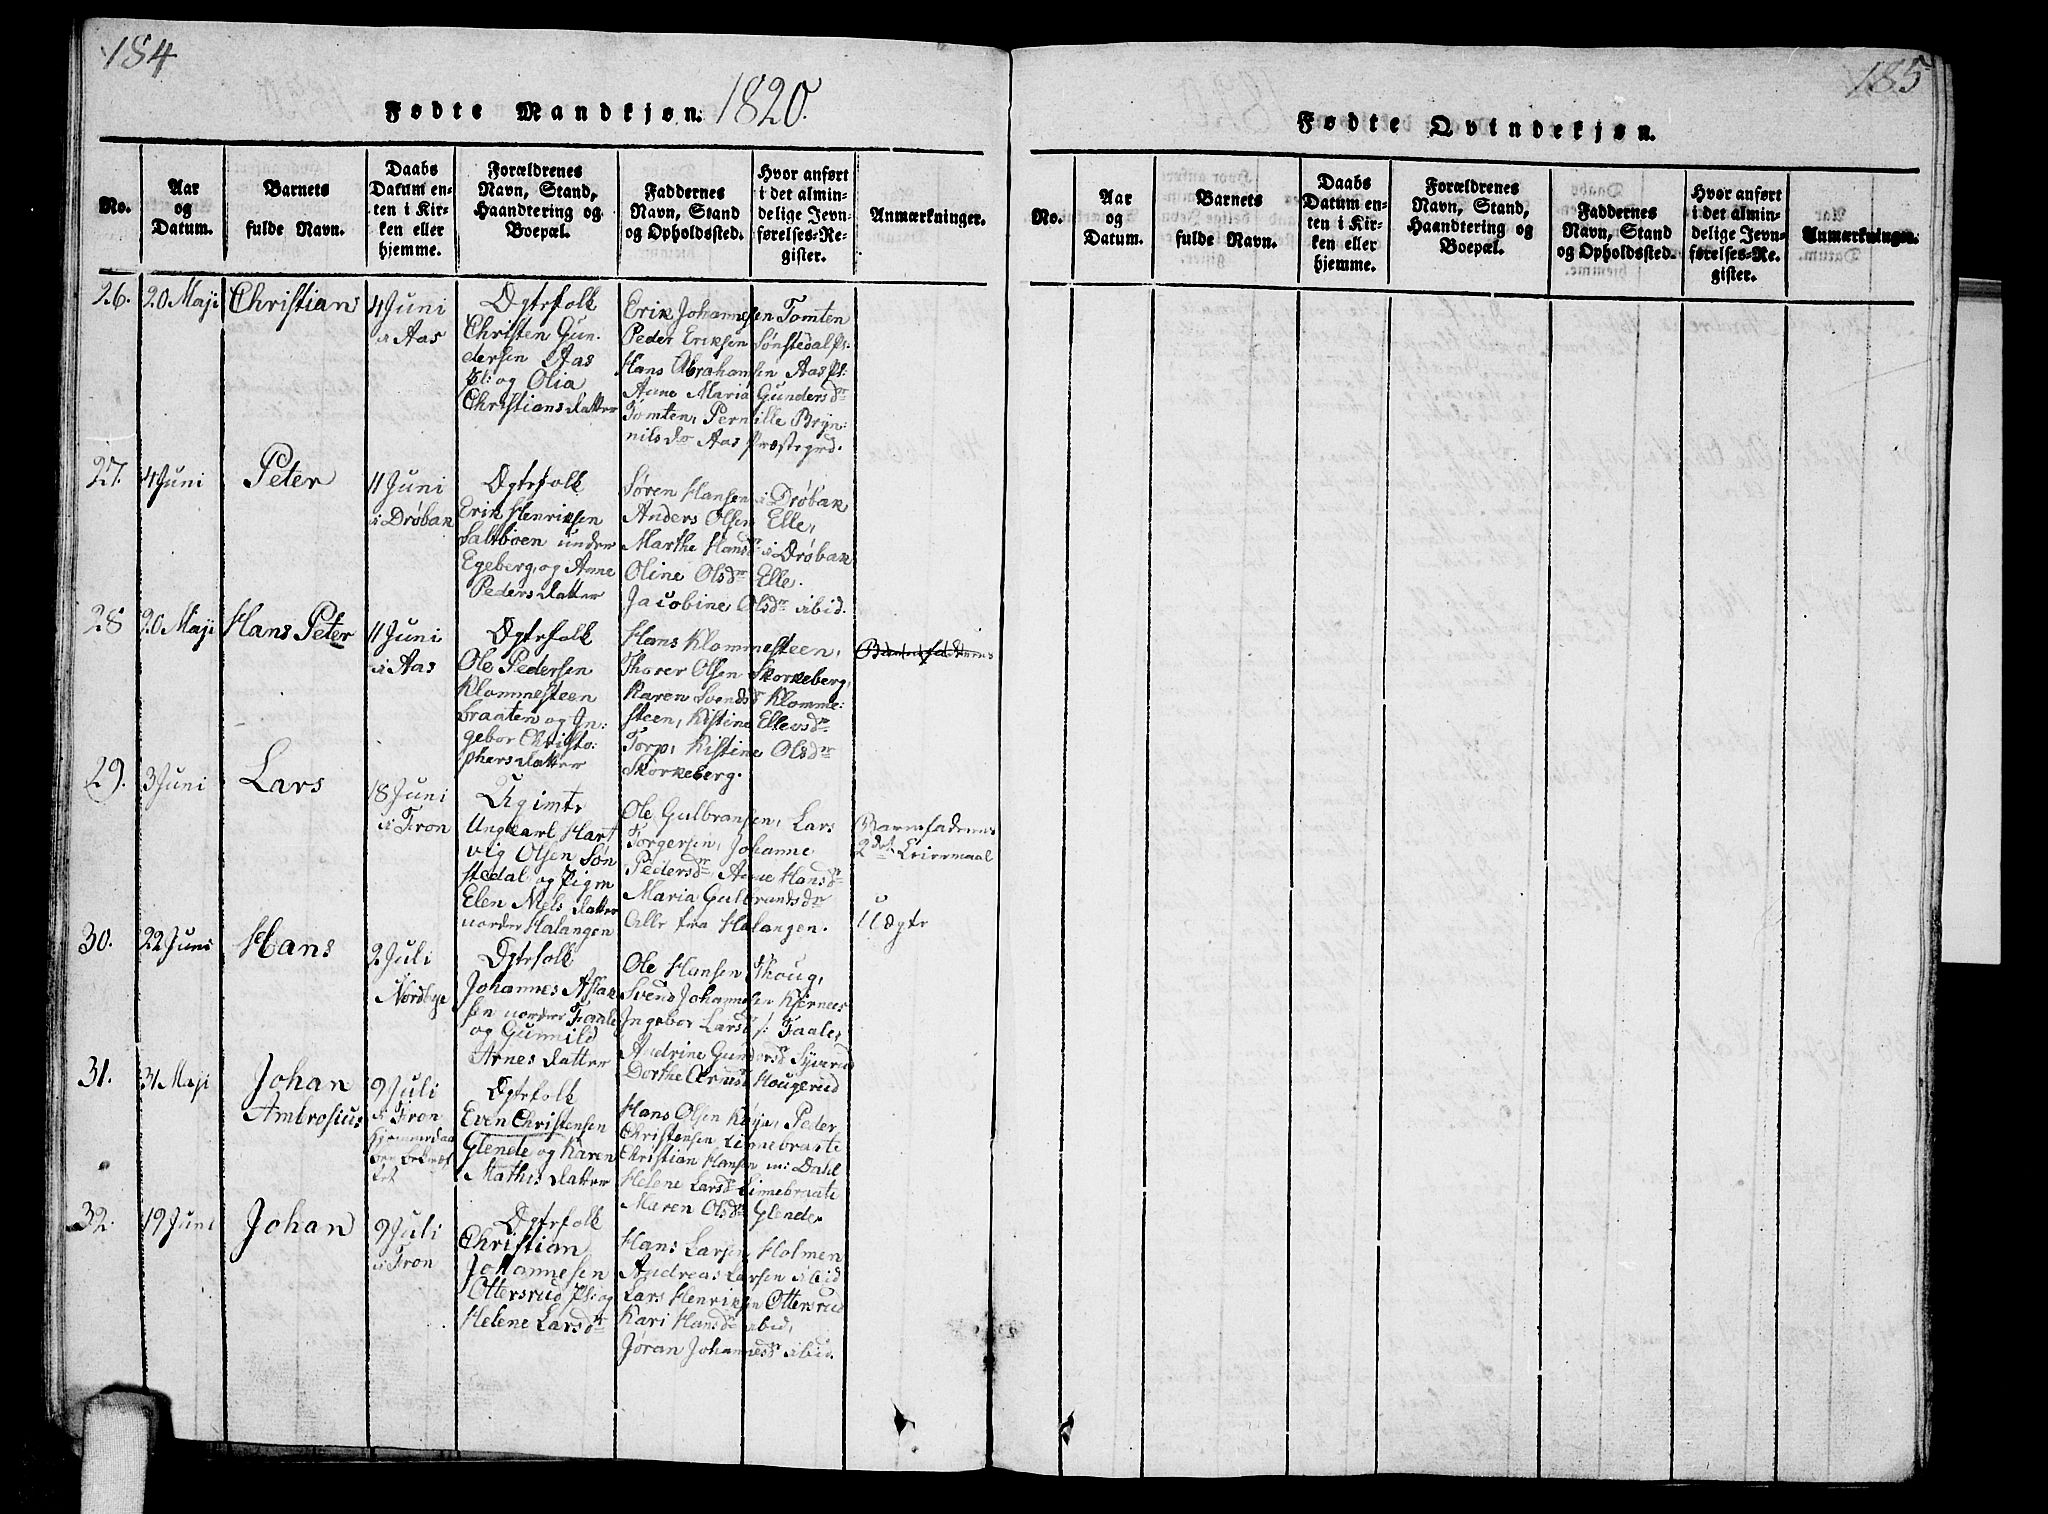 184
Fødte Mandkjøn. 1820.
No.
Aar
og
Datum.
Barnets
fulde Navn.
Daabs
Datum en-
ten i Kir-
ken eller
hjemme.
Forældrenes
Navn, Stand,
Haandtering og
Boepæl.
Faddernes
Navn, Stand
og Opholdssted.
Hvor anført
i det almin-
delige Jevn-
førelses-Re-
gister.
Anmærkninger.
26.
20 Maji
Christian
4 Juni
i Aas
Ægtefolk
Christen Gun-
dersen Aas
pl: og Olia
Christiansdatter
Erik Johannesen Tomten
Peder Eriksen Sønstedal pl:
Hans Abrahamsen Aas pl:
Anne Maria Gundersdr
Tomten, Pernille Bryn-
nilsdr Aas præstegrd.
27.
4 Juni
Peter
11 Juni
i Drøbak
Ægtefolk
Erik Henriksen
Saltboen under
Egeberg, og Anne
Pedersdatter
Søren Hansen i Drøbak
Anders Olsen Elle,
Marthe Hansdr i Drøbak
Oline Olsdr Elle.
Jacobine Olsdr ibid.
28
20 Maji
Hans Peter
11 Juni
i Aas
Ægtefolk
Ole Pedersen
Klommesteen
Braaten og In-
gebor Christo-
phersdatter
Hans Klommesteen,
Thorer Olsen Skorkeberg,
Karen Svendsdr Klomme-
steen, Kistine Ellevsdr
Torp, Kistine Olsdr
Skorkeberg.
29.
3 Juni
Lars
18 Juni
i Fron
Ugivte
Ungkarl Hart
vig Olsen Søn
stedal og Pigen
Elen Nelsdatter
norder Halangen
Ole Gulbransen, Lars
Torgersen, Johanne
Pedersdr, Anne Hansdr
Maria Gulbrandsdr
Alle fra Halangen.
Barnefaderens
2det Leiermaal
Uægte
30.
22 Juni
Hans
2 Juli
i Nordbye
Ægtefolk
Johannes Aslak
sen norder Faale
og Gunnild
Arnesdatter
Ole Hansen Skoug,
Svend Johannesen Kjernes
Ingebor Larsdr Faale,
Andrine Gundersdr Syverud
Dorthe Arnesdr Hougerud
31.
31 Maji
Johan
Ambrosius
9 Juli
i Fron
hjemmedaa
ben bekræf
tet
Ægtefolk
Even Christensen
Glende og Karen
Mathisdatter
Hans Olsen Kaja, Peder
Christensen Linnebraate
Christian Hansen Dahl
Helene Larsdr Linnebraate
Maren Olsdr Glender
32.
19 Juni
Johan
9 Juli
i Fron
Ægtefolk
Christian
Johannesen
Ottersrud Pl: og
Helene Larsdr
Hans Larsen Holmen
Andreas Larsen ibid
Lars Henriksen Ottersrud
Kari Hansdr ibid,
Jøran Johannesdr ibid.
185
Fødte Qvindekjøn.
No.
Aar
og
Datum.
Barnets
fulde Navn.
Daabs
Datum en-
ten i Kir-
ken eller
hjemme.
Forældrenes
Navn, Stand,
Haandtering og
Boepæl.
Faddernes
Navn, Stand
og Opholdssted.
Hvor anført
i det almin-
delige Jevn-
førelses-Re-
gister.
Anmærkninger.